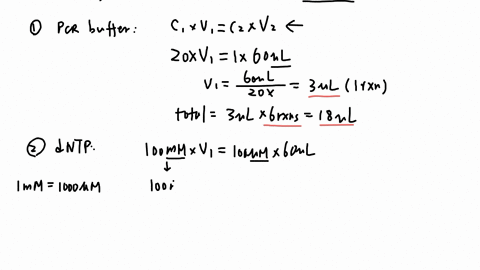 ① PCR buffer: C₁ × V₁ = C₂ × V₂ ←
20 × V₁ = 1 × 60uL
V₁ = 60uL / 20X = 3uL (1 rxn)
total = 3uL × 6rxns = 18uL
② dNTP: 100mM × V₁ = 10uM × 60uL
↓
1mM = 1000uM 100